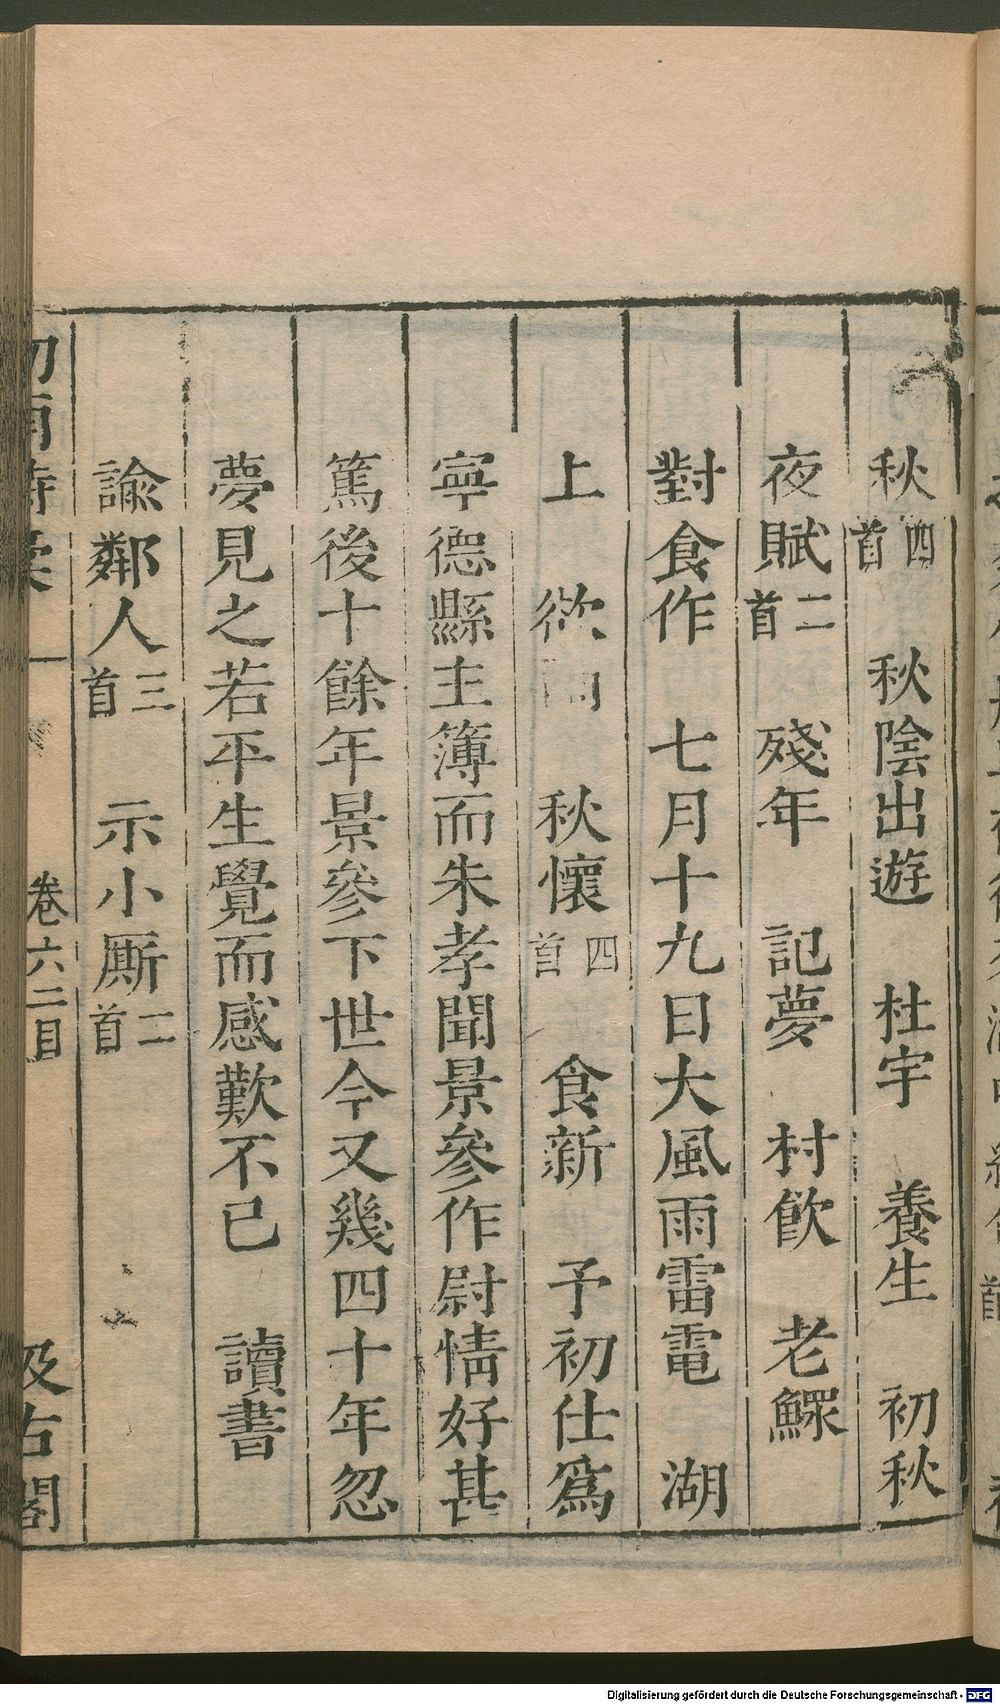 秋四首　秋陰出遊　杜宇　養生　初秋
夜賦二首　殘年　記夢　村飲　老鰥
對食作　七月十九日大風雨雷電　湖
上　欲　秋懷四首　食新　予初仕爲
寜德縣主簿而朱孝聞景參作尉情好甚
篤後十餘年景參下世今又幾四十年忽
夢見之若平生覺而感歎不已　讀書
諭鄰人三首　示小厮二首
卷六二目
汲古閣
Digitalisierung gefördert durch die Deutsche Forschungsgemeinschaft - DFG